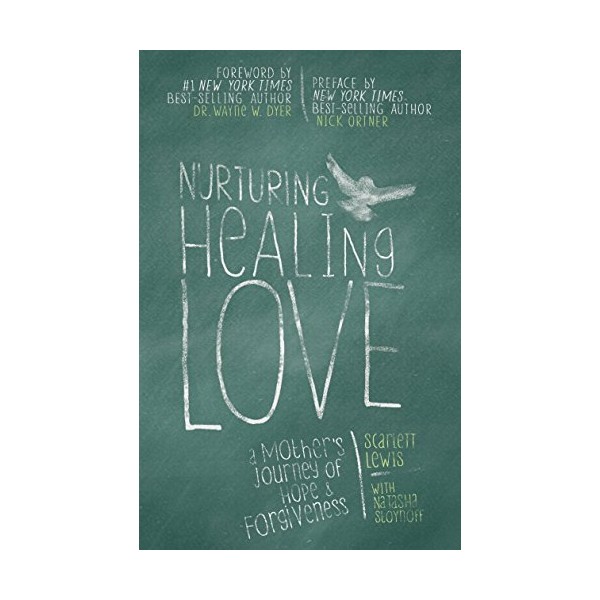 FOREWORD BY
#1 NEW YORK TIMES
BEST-SELLING AUTHOR
DR. WAYNE W. DYER
PREFACE BY
NEW YORK TIMES
BEST-SELLING AUTHOR
NICK ORTNER
NURTURING
HeALINg
LOVE
a MOTHeR'S
JOURNeY OF
HOPe &
FORgIVeNeSS
ScaRLeTT
LeWIS
WITH
NaTaSHa
STOYNOFF